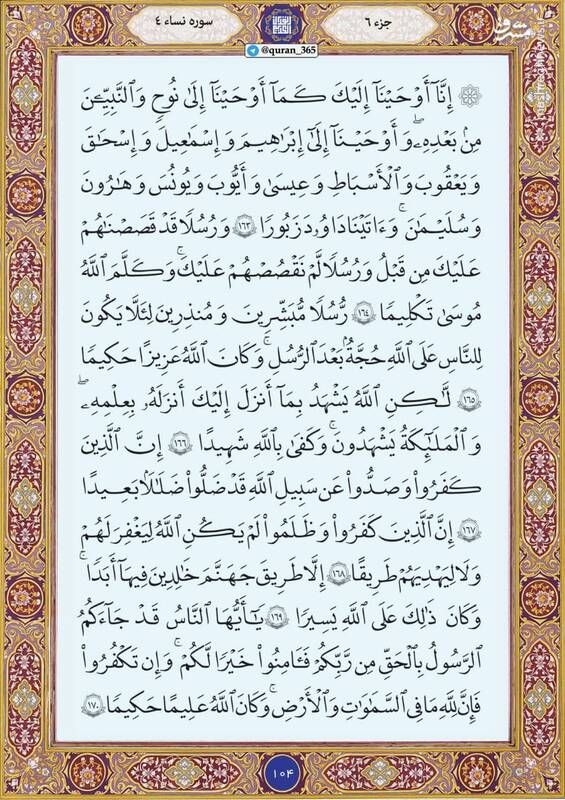 جزء ۶
@quran_365
سوره نساء ٤
مشرق
۞ إِنَّآ أَوْحَيْنَآ إِلَيْكَ كَمَآ أَوْحَيْنَآ إِلَىٰ نُوحٍ وَٱلنَّبِيِّـۧنَ
مِنۢ بَعْدِهِۦۚ وَأَوْحَيْنَآ إِلَىٰٓ إِبْرَٰهِيمَ وَإِسْمَٰعِيلَ وَإِسْحَٰقَ
وَيَعْقُوبَ وَٱلْأَسْبَاطِ وَعِيسَىٰ وَأَيُّوبَ وَيُونُسَ وَهَٰرُونَ
وَسُلَيْمَٰنَۚ وَءَاتَيْنَا دَاوُۥدَ زَبُورًا ١٦٣ وَرُسُلًا قَدْ قَصَصْنَٰهُمْ
عَلَيْكَ مِن قَبْلُ وَرُسُلًا لَّمْ نَقْصُصْهُمْ عَلَيْكَۚ وَكَلَّمَ ٱللَّهُ
مُوسَىٰ تَكْلِيمًا ١٦٤ رُّسُلًا مُّبَشِّرِينَ وَمُنذِرِينَ لِئَلَّا يَكُونَ
لِلنَّاسِ عَلَى ٱللَّهِ حُجَّةٌۢ بَعْدَ ٱلرُّسُلِۚ وَكَانَ ٱللَّهُ عَزِيزًا حَكِيمًا
١٦٥ لَّٰكِنِ ٱللَّهُ يَشْهَدُ بِمَآ أَنزَلَ إِلَيْكَۖ أَنزَلَهُۥ بِعِلْمِهِۦۖ
وَٱلْمَلَٰٓئِكَةُ يَشْهَدُونَۚ وَكَفَىٰ بِٱللَّهِ شَهِيدًا ١٦٦ إِنَّ ٱلَّذِينَ
كَفَرُوا۟ وَصَدُّوا۟ عَن سَبِيلِ ٱللَّهِ قَدْ ضَلُّوا۟ ضَلَٰلًۢا بَعِيدًا
١٦٧ إِنَّ ٱلَّذِينَ كَفَرُوا۟ وَظَلَمُوا۟ لَمْ يَكُنِ ٱللَّهُ لِيَغْفِرَ لَهُمْ
وَلَا لِيَهْدِيَهُمْ طَرِيقًا ١٦٨ إِلَّا طَرِيقَ جَهَنَّمَ خَٰلِدِينَ فِيهَآ أَبَدًاۚ
وَكَانَ ذَٰلِكَ عَلَى ٱللَّهِ يَسِيرًا ١٦٩ يَٰٓأَيُّهَا ٱلنَّاسُ قَدْ جَآءَكُمُ
ٱلرَّسُولُ بِٱلْحَقِّ مِن رَّبِّكُمْ فَـَٔامِنُوا۟ خَيْرًا لَّكُمْۚ وَإِن تَكْفُرُوا۟
فَإِنَّ لِلَّهِ مَا فِى ٱلسَّمَٰوَٰتِ وَٱلْأَرْضِۚ وَكَانَ ٱللَّهُ عَلِيمًا حَكِيمًا ١٧٠
۱۰۴